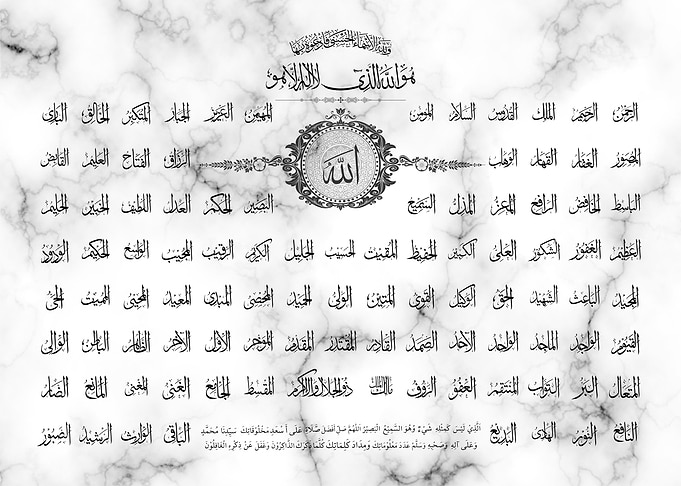 ولله الأسماء الحسنى فادعوه بها
هو الله الذي لا اله الا هو
الرحمن الرحيم الملك القدوس السلام المؤمن المهيمن العزيز الجبار المتكبر الخالق البارئ
الله
المصور الغفار القهار الوهاب الرزاق الفتاح العليم القابض
الباسط الخافض الرافع المعز المذل السميع البصير الحكم العدل اللطيف الخبير الحليم
العظيم الغفور الشكور العلي الكبير الحفيظ المقيت الحسيب الجليل الكريم الرقيب المجيب الواسع الحكيم الودود
المجيد الباعث الشهيد الحق الوكيل القوي المتين الولي الحميد المحصي المبدئ المعيد المحيي المميت الحي
القيوم الواجد الماجد الواحد الأحد الصمد القادر المقتدر المقدم المؤخر الأول الآخر الظاهر الباطن الوالي
المتعال البر التواب المنتقم العفو الرؤوف مالك الملك ذو الجلال والإكرام المقسط الجامع الغني المغني المانع الضار
النافع النور الهادي البديع الباقي الوارث الرشيد الصبور
الذي ليس كمثله شيء وهو السميع البصير اللهم صل أفضل صلاة على أسعد مخلوقاتك سيدنا محمد
وعلى آله وصحبه وسلم عدد معلوماتك ومداد كلماتك كلما ذكرك الذاكرون وغفل عن ذكره الغافلون